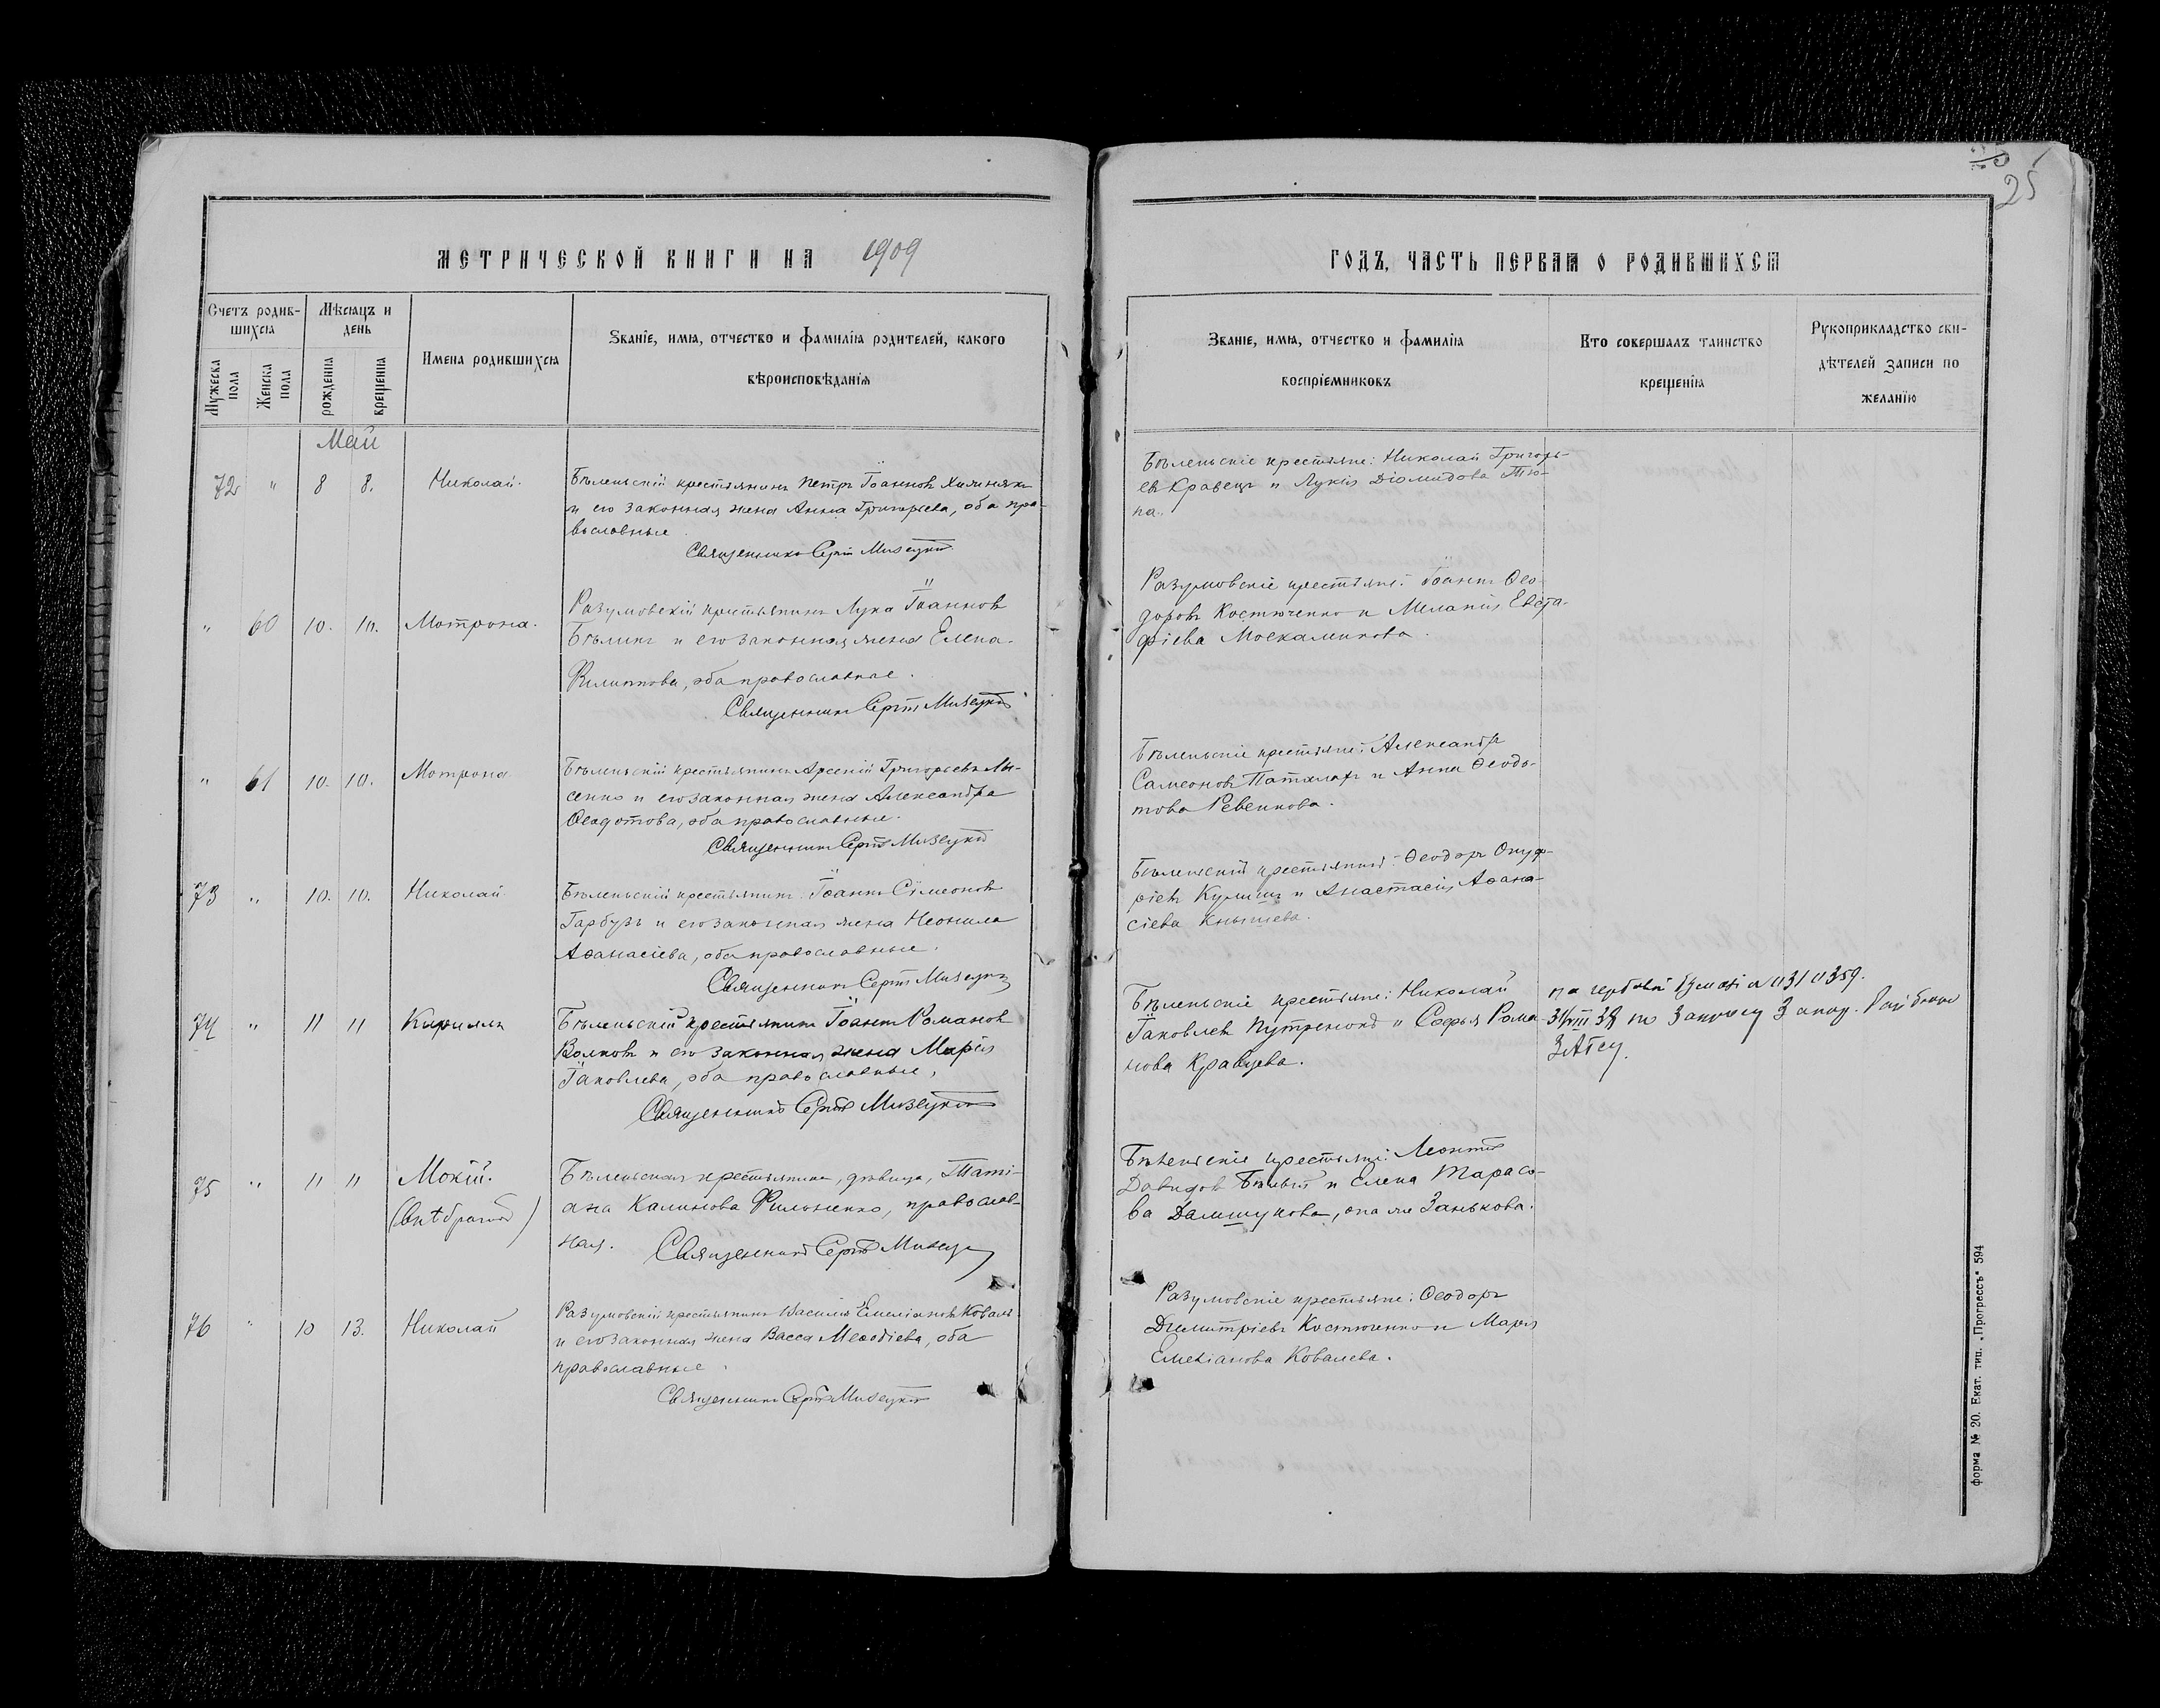 25
МЕТРИЧЕСКОЙ КНИГИ НА 1909
ГОДЪ, ЧАСТЬ ПЕРВАЯ О РОДИВШИХСЯ
Счетъ родив-
шихся
Мужеска пола
Женска пола
Мѣсяцъ и
день
рожденія
крещенія
Имена родившихся
Званіе, имя, отчество и фамилія родителей, какого
вѣроисповѣданія
Званіе, имя, отчество и фамилія
воспріемниковъ
Кто совершалъ таинство
крещенія
Рукоприкладство сви-
дѣтелей записи по
желанію
Май
72 " 8 8. Николай.
Бѣленьскій крестьянинъ Петръ Іоанновъ
и его законная жена Анна Григорьева, оба пра-
вославные
Священникъ Сергій Мизецкій
Бѣленьскіе крестьяне: Николай Григорь-
евъ Кравецъ и Лукія Діомидова Тю-
па.
" 60 10. 10. Мотрона.
Разумовскій крестьянинъ Лука Іоанновъ
Бѣликъ и его законная жена Елена
Филиппова, оба православные.
Священникъ Сергій Мизецкій
Разумовскіе крестьяне: Іоаннъ Ѳео-
доровъ Костюченко и Меланія Евста-
фіева Москаленкова.
" 61 10. 10. Мотрона
Бѣленьскій крестьянинъ Арсеній Григорьевъ Лы-
сенко и его законная жена Александра
Ѳеодотова, оба православные.
Священникъ Сергій Мизецкій
Бѣленьскіе крестьяне: Александръ
Самсоновъ и Анна Ѳеодо-
това Ревенкова.
73 " 10. 10. Николай
Бѣленьскій крестьянинъ Іоаннъ Сімеоновъ
Гарбузъ и его законная жена Неонила
Аѳанасіева, оба православные.
Священникъ Сергій Мизецкій
Бѣленьскій крестьянинъ: Ѳеодоръ Онуф-
ріевъ Кулишъ и Анастасія Аѳана-
сіева Кнышева.
74 " 11 11 Кириллъ
Бѣленьскій крестьянинъ Іоаннъ Романовъ
Волковъ и его законная жена Марія
Іаковлева, оба православные,
Священникъ Сергій Мизецкій
Бѣленьскіе крестьяне: Николай
Іаковлевъ и Софья Рома-
нова Кравцева.
31/VIII 38 по
ЗАГСу.
75 " 11 11 Мокій.
(внѣбрачный)
Бѣленьская крестьянка, дѣвица, Таті-
ана Калинова Фильченко, православ-
ная. Священникъ Сергій Мизецкій
Бѣленьскіе крестьяне: Леонтій
Давидовъ Бѣлый и Елена Тарасо-
ва , она же Занькова.
76 " 10 13. Николай
Разумовскій крестьянинъ Василій Емеліановъ Коваль
и его законная жена Васса Меѳодіева, оба
православные.
Священникъ Сергій Мизецкій
Разумовскіе крестьяне: Ѳеодоръ
Димитріевъ Костюченко и Марія
Емеліанова Ковалева.
форма № 20. Екат. тип. „Прогрессъ" 594